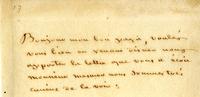 Bonjour mon bon papa, voulez
vous bien en venant dîner nous
apporter la lettre que vous a écrit
monsieur nous sommes tres
de la voir;